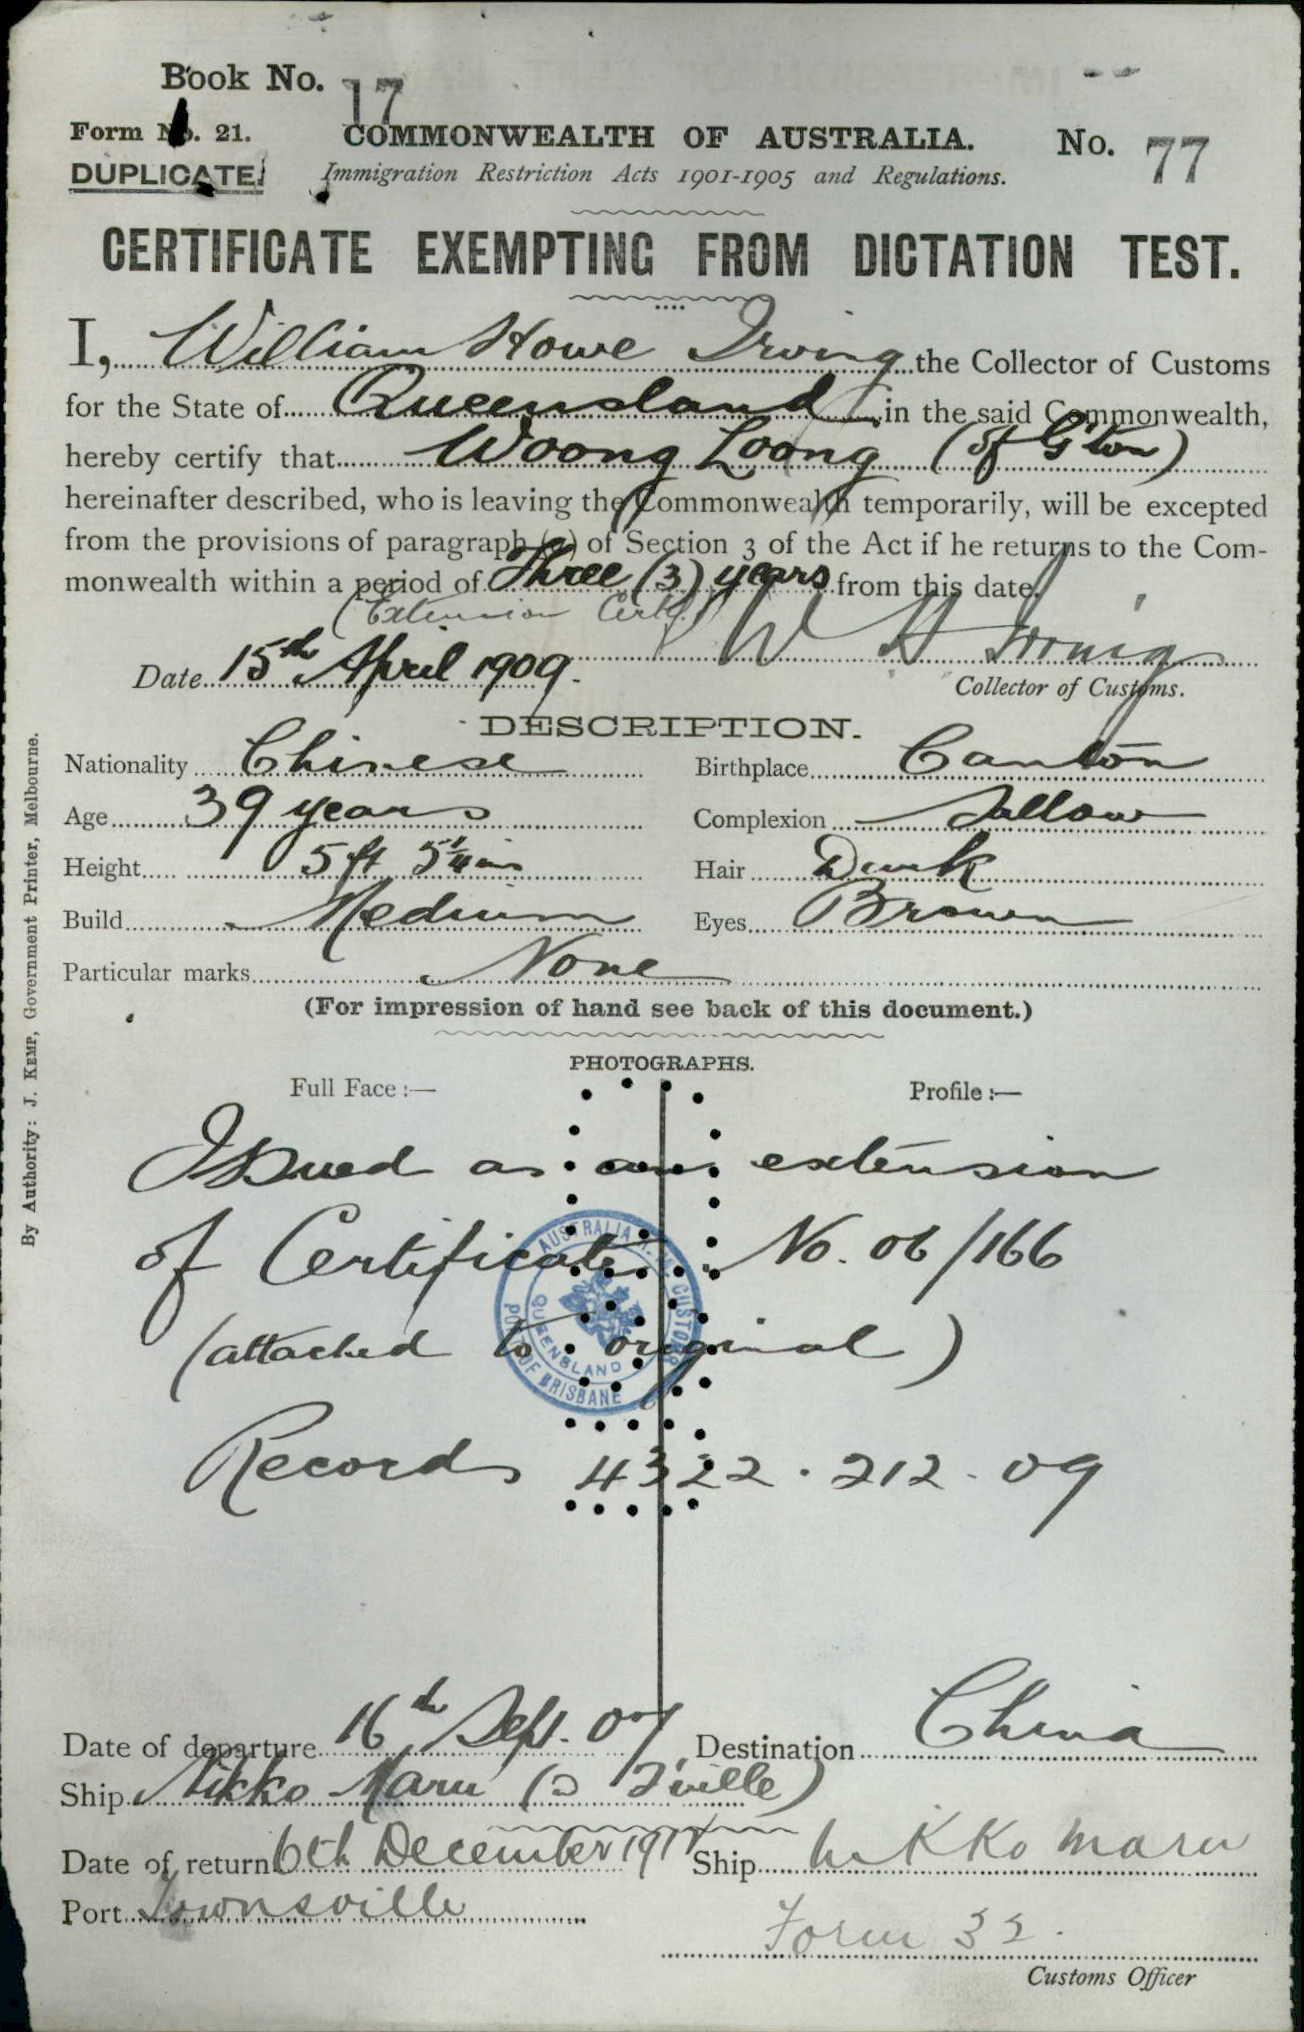 Book No. 17
Form No. 21.
COMMONWEALTH OF AUSTRALIA.
No. 77
DUPLICATE
Immigration Restriction Acts 1901-1905 and Regulations.
CERTIFICATE EXEMPTING FROM DICTATION TEST.
I, William Howe Irving the Collector of Customs
for the State of Queensland in the said Commonwealth,
hereby certify that Woong Loong (of G'ton)
hereinafter described, who is leaving the Commonwealth temporarily, will be excepted
from the provisions of paragraph (a) of Section 3 of the Act if he returns to the Com-
monwealth within a period of Three (3) years from this date.
(Extension Certif.)
W H Irving
Date 15th April 1909.
Collector of Customs.
DESCRIPTION.
Nationality Chinese
Birthplace Canton
Age 39 years
Complexion Sallow
Height 5 ft 5 1/4 in
Hair Dark
Build Medium
Eyes Brown
Particular marks None
(For impression of hand see back of this document.)
PHOTOGRAPHS.
Full Face :—
Profile :—
Issued as an extension
of Certificate No. 06/166
(attached to original)
Records 4322.212.09
AUSTRALIA CUSTOMS
QUEENSLAND
PORT OF BRISBANE
Date of departure 16th Sept. 07
Destination China
Ship Nikko Maru (T'ville)
Date of return 6th December 191
Ship Nikko Maru
Port Townsville
Form 32.
Customs Officer
By Authority: J. KEMP, Government Printer, Melbourne.